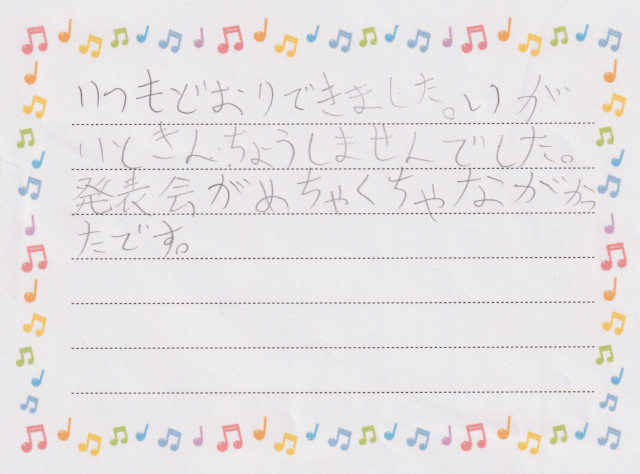 いつもどおりできました。いが
いときんちょうしませんでした。
発表会がめちゃくちゃながかっ
たです。